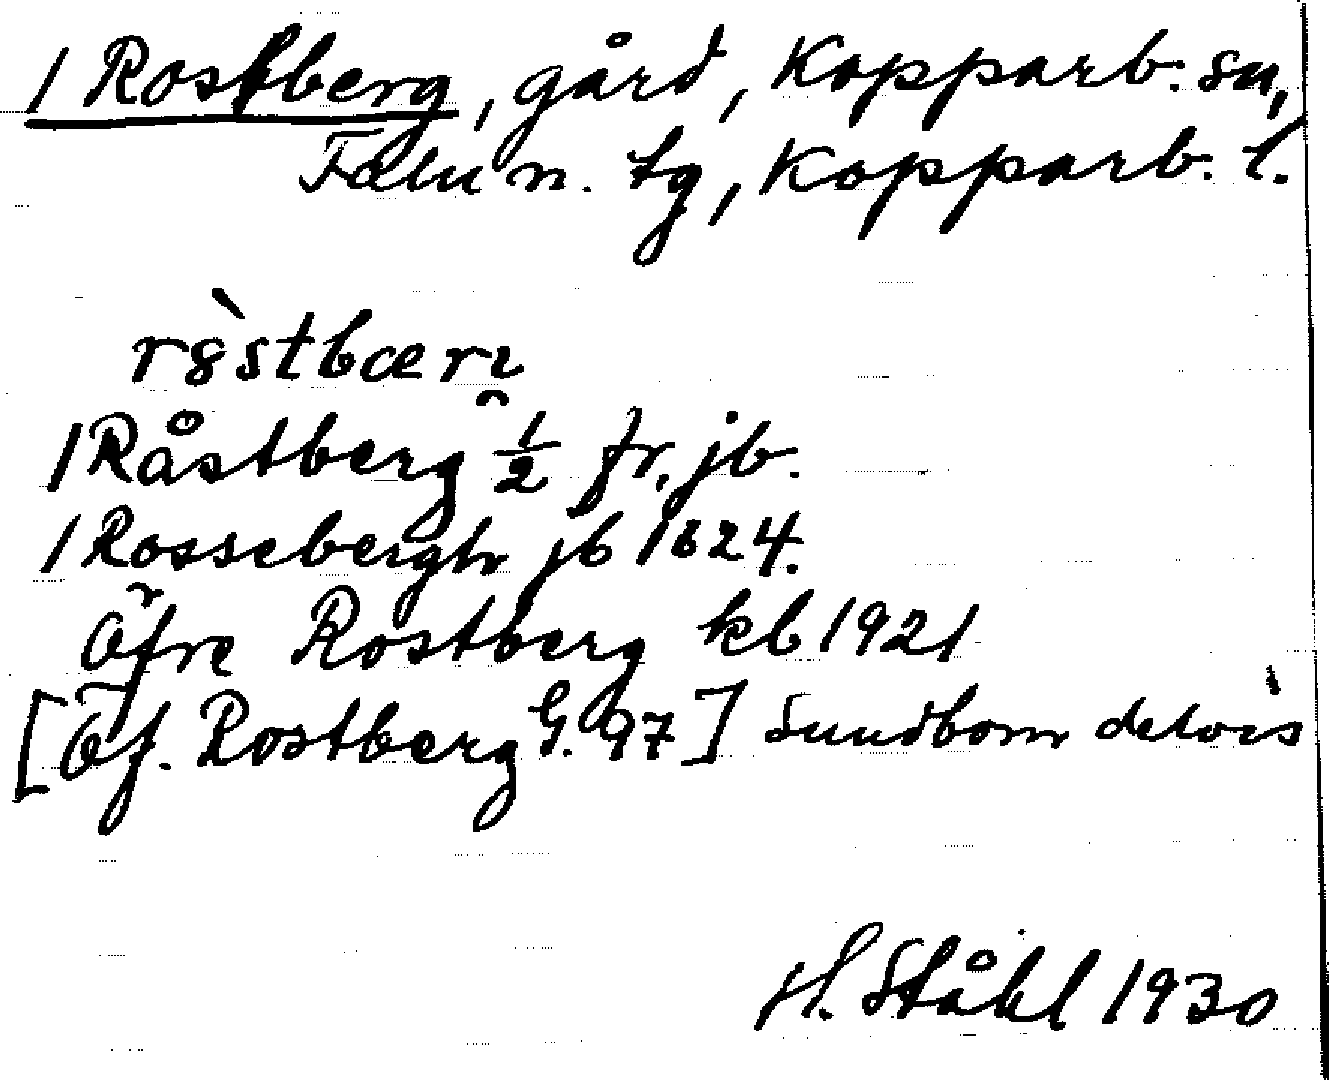 / Rostberg, gård, Kopparb. sn,
Falu n. tg, Kopparb. l.
/ Råstberg ½ fr. jb.
/ Rossebergh jb 1624.
Öfre Rostberg kb 1921
[Öf. Rostberg G. 97] Sundborn delvis
H. Ståhl 1930